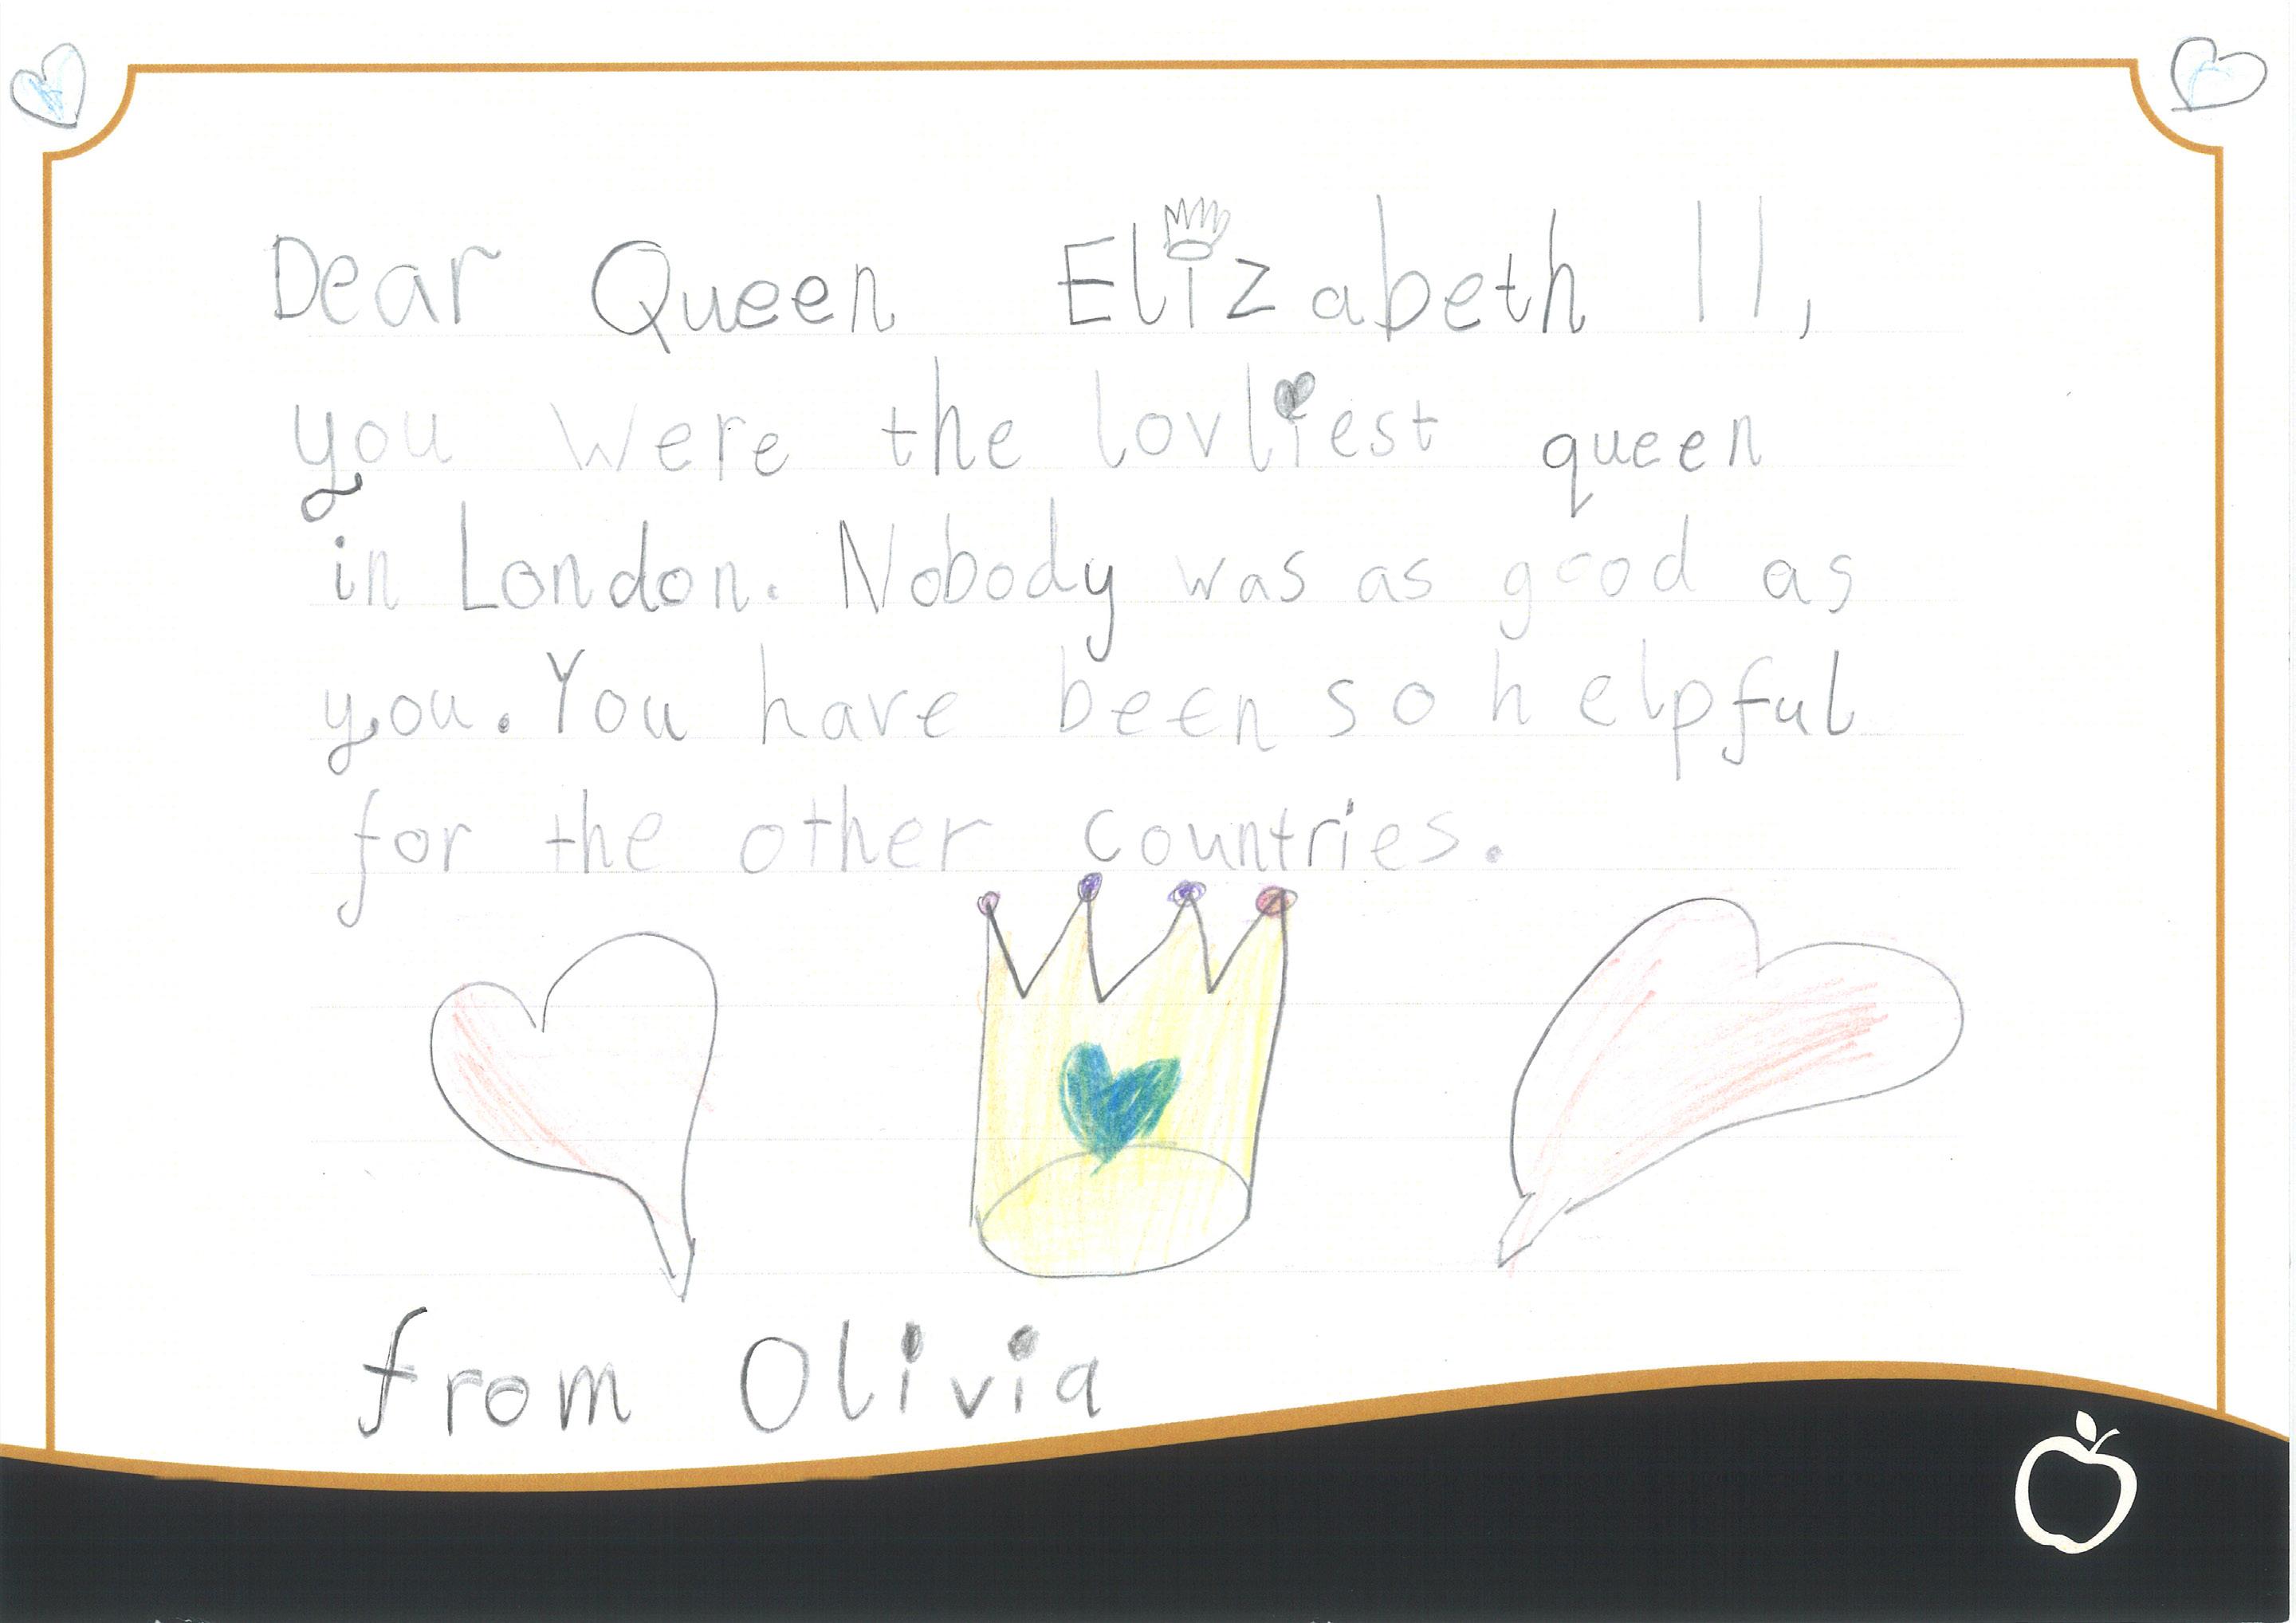 Dear Queen Elizabeth II,
you were the lovliest queen
in London. Nobody was as good as
you. You have been so helpful
for the other countries.
from Olivia